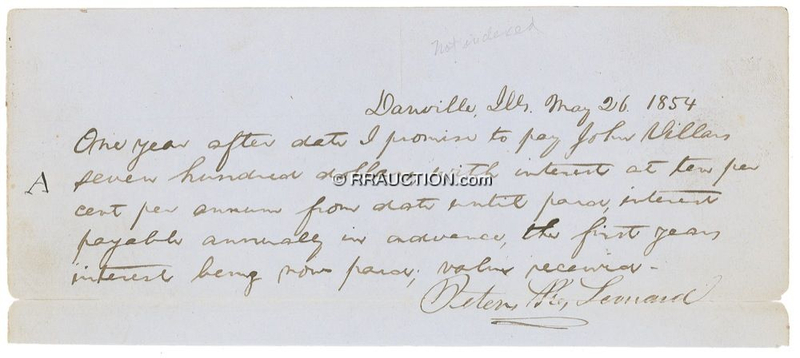 Not indexed
Danville, Ills. May 26. 1854
One year after date I promise to pay John Villars
A
seven hundred dollars with interest at ten per
© RRAUCTION.com
cent per annum from date until paid, interest
payable annually in advance, the first years
interest being now paid; value received -
Peter Leonard